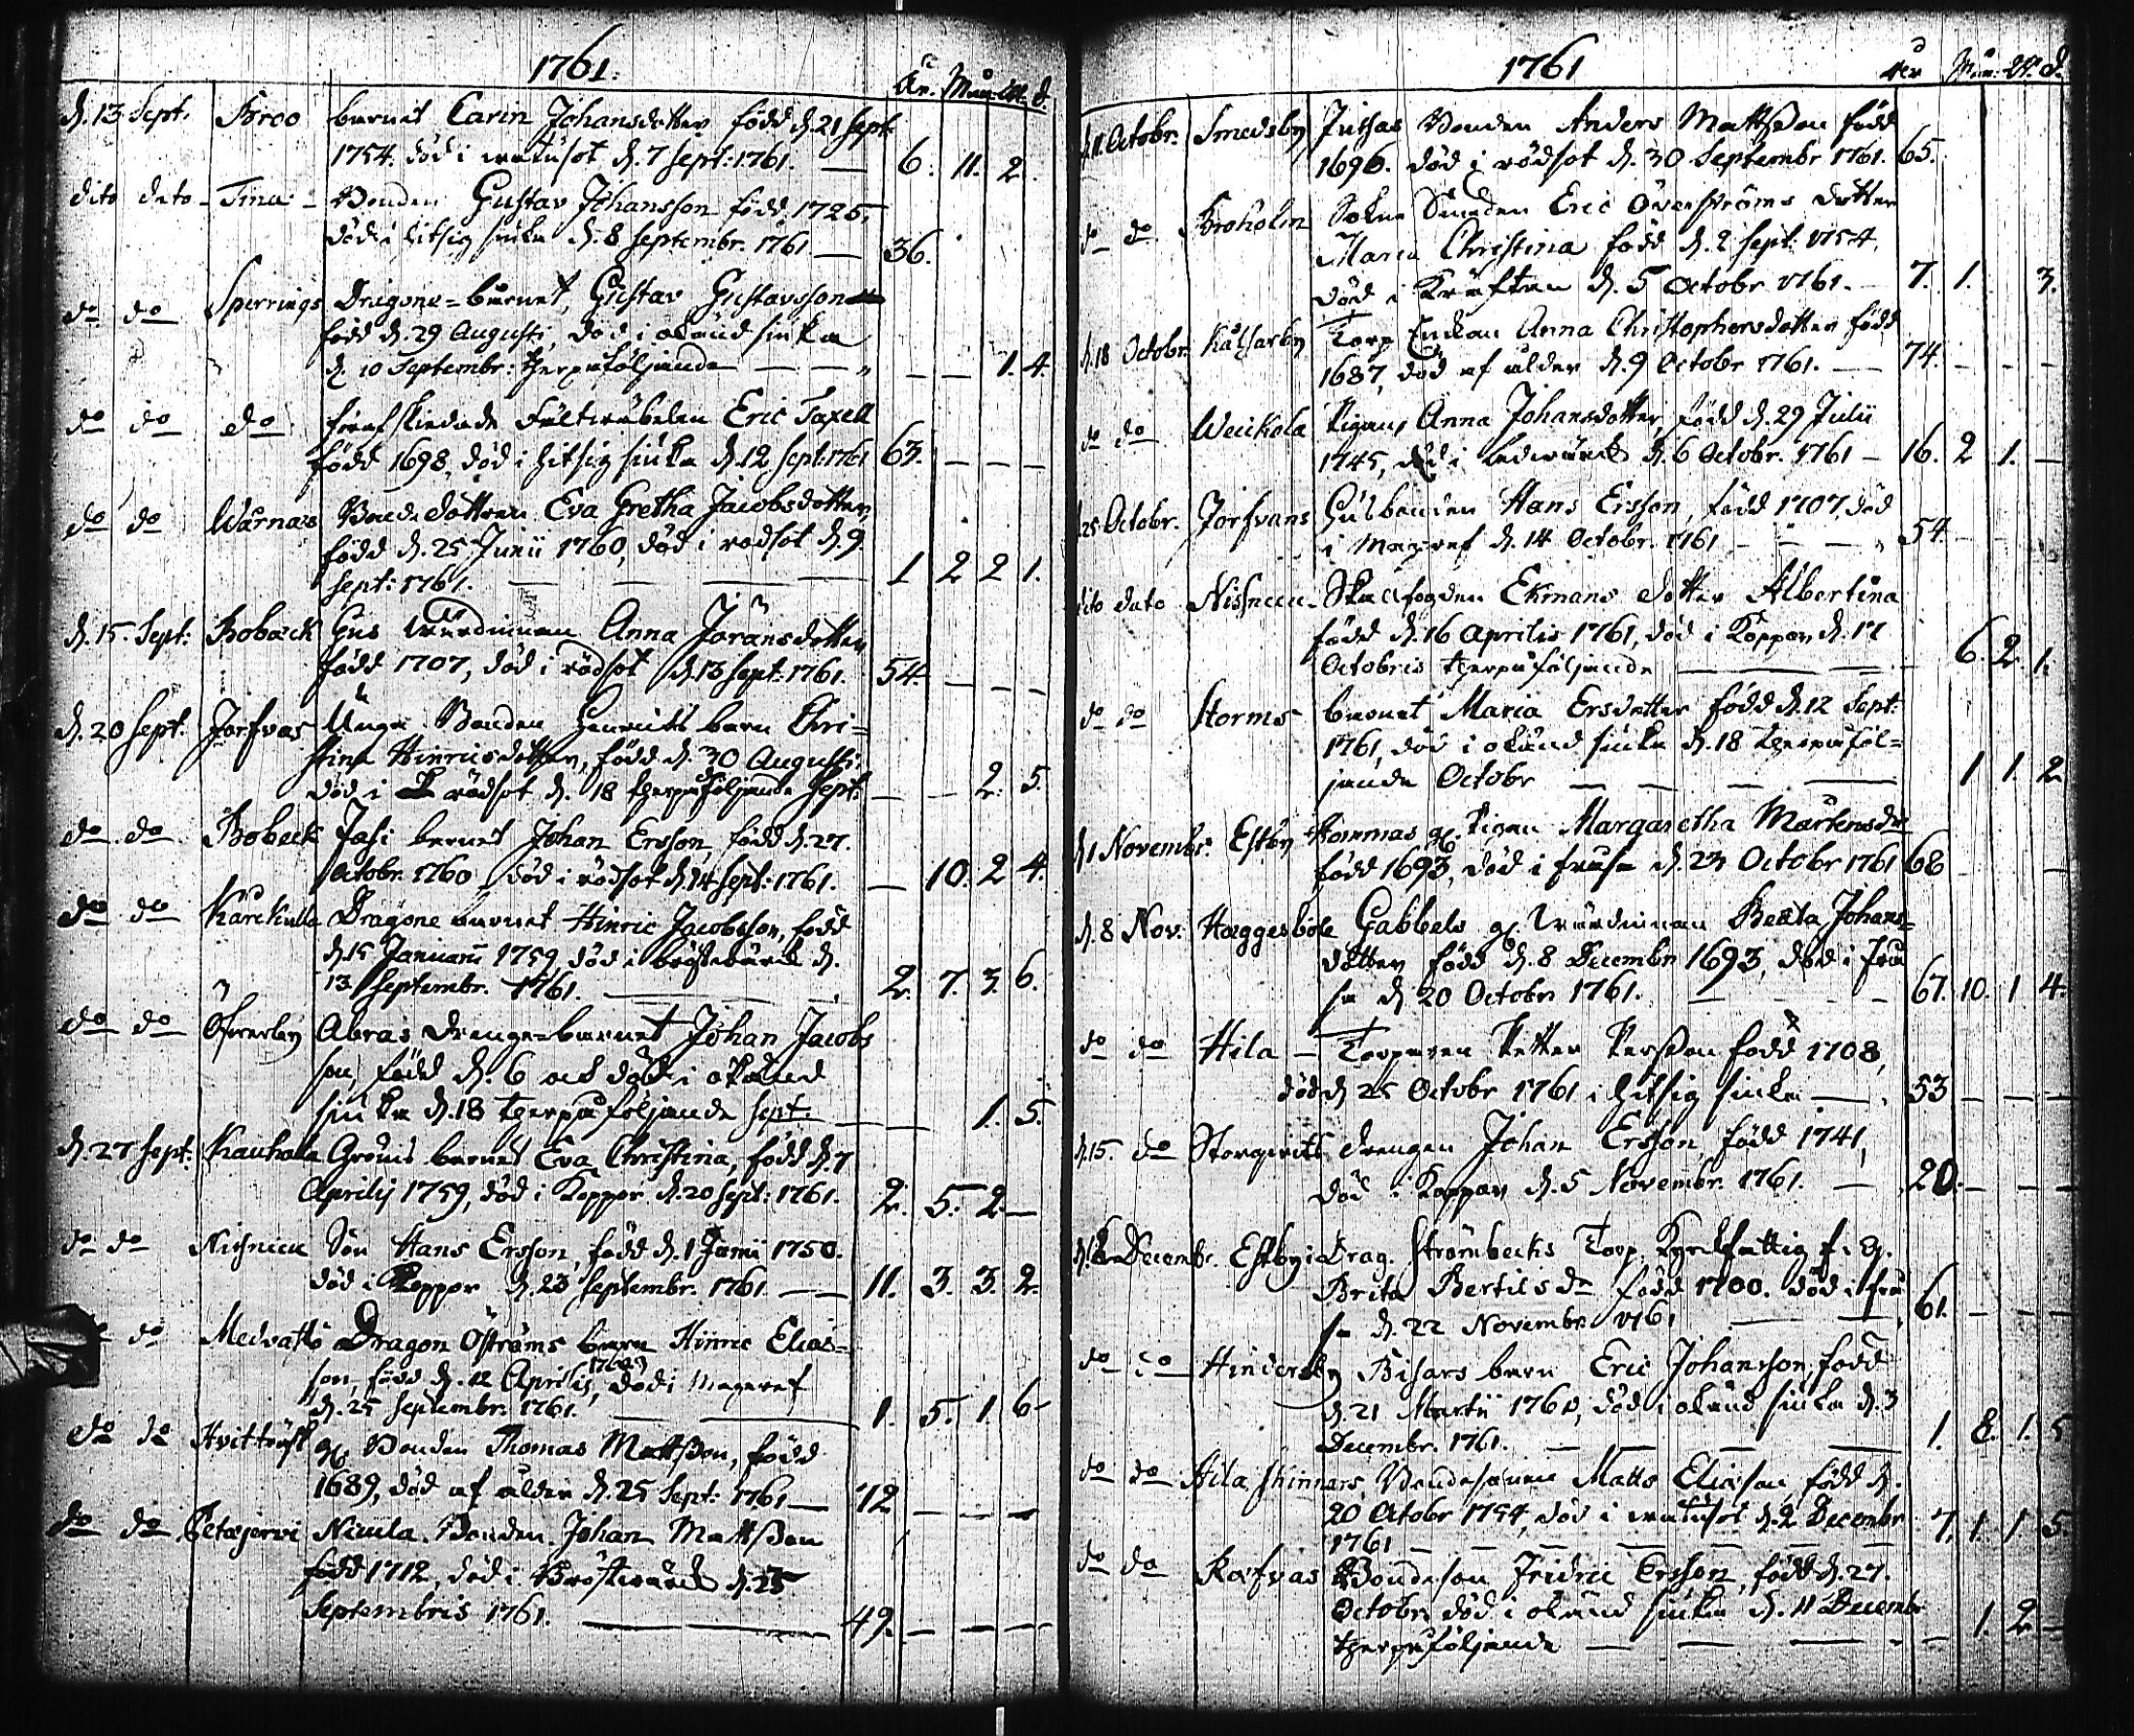 1761.
År. Mån. W. d.
d. 13 Sept. Broo barnet Carin Johansdotter född d. 21 Sept.
1754. död i matusot d. 7 Sept: 1761. — 6. 11. 2.
dito dato — Tina — Bonden Gustav Johansson född 1725,
död i hitsig siuka d. 8 Septembr. 1761. — 36.
do do Sperrings Dragone=barnet, Gustav Gustavsson
född d. 29 Augusti, död i okänd siuka
d. 10 Septembr: therpåföljande — — 1. 4.
do do do förafskiedade Fältwäbelen Eric Taxell
född 1698, död i hitsig siuka d. 12 Sept: 1761 63. — — —
do do Wårnäs Bonde dottren Eva Gretha Jacobsdotter,
född d. 25 Junii 1760, död i rödsot d. 9
Sept: 1761. — — — 1 2 2 1.
d. 15. Sept: Bobäck Hus wärdinnan Anna Jöransdotter
född 1707, död i rödsot d. 13 Sept: 1761. 54. — — —
d. 20 Sept. Jorfvas Unga Bonden Henrics barn Chri=
stina Hinricsdotter, född d. 30 Augusti.
död i rödsot d. 18 therpåföljande Sept: — — 2. 5.
do do Bobeck Jasi barnet Johan Ersson, född d. 27.
Octobr. 1760, död i rödsot d. 14 Sept: 1761. — 10. 2 4.
do do Karskulla Dragone barnet Hinric Jacobsson, född
d. 15 Januarii 1759, död i bröstwärk d.
13 Septembr. 1761. — 2. 7. 3. 6.
do do Öfverby Abras drenge=barnet Johan Jacobs
son, född d. 6 och död i okänd
siuka d. 18 therpåföljande Sept: — — 1. 5.
d. 27 Sept: Kauhala Gröns barnet Eva Christina, född d. 7
Aprilis 1759, död i Koppor d. 20 Sept: 1761. 2. 5. 2. —
do do Nissnicu Son Hans Ersson, född d. 1 Junii 1750.
död i Koppor d. 23 Septembr. 1761 — — 11. 3. 3. 2.
do Medvasts Dragon Öströms barn Hinric Elias=
son, född d. 12 Aprilis 1760, död i magref
d. 25 Septembr: 1761. — 1. 5. 1 6.
do do Hvitträsk g. Bonden Thomas Mattsson, född
1689, död af ålder d. 25 Sept: 1761 — 72 — — —
do do Petäjervi Nicula Bonden Johan Mattsson
född 1712, död i Bröstwärk d. 25
Septembris 1761. — 49. — — —
1761
År Mån: W. d.
d. 11. Octobr. Smedsby Juthas Bonden Anders Mattsson född
1696. död i rödsot d. 30 Septembr 1761. 65.
do do Broholm Sokne Smeden Eric Överströms dotter
Maria Christina född d. 2 Sept: 1754,
död i Kräftan d. 5 Octobr 1761. — 7. 1. 3.
d. 18 Octobr. Kälsarby Torp Enkan Anna Christophersdotter född
1687, död af ålder d. 9 Octobr 1761. — 74. — — —
do do Weickola Pigan Anna Johansdotter, född d. 29 Julii
1745, död i ledwärk d. 6 Octobr. 1761 — 16. 2 1. —
25 Octobr. Jorfvas Husbonden Hans Ersson, född 1707, död
i Magref d. 14 Octobr. 1761 — — — 54
dito dato Nissnicu Skallfogden Ekmans dotter Albertina
född d. 16 Aprilis 1761, död i Koppor d. 17
Octobris therpåföljande — — 6. 2. 1.
do do Storms barnet Maria Ersdotter född d. 12 Sept:
1761, död i okänd siuka d. 18 therpåföl=
jande Octobr — — — 1 1. 2
d. 1 Novembr. Estby Hommas g. Pigan Margaretha Mårtensdr
född 1693, död i frusa d. 23 Octobr 1761 68
d. 8 Nov: Haggesböle Gabbels g. wärdinnan Beata Johans=
dotter född d. 8 Decembr 1693, död i fru
sa d. 20 Octobr 1761. — — 67. 10. 1 4.
do do Hila — Torparen Petter Persson född 1708,
död d. 25 Octobr 1761 i hitsig siuka — 53 — — —
d. 15. do Storgirits drengen Johan Ersson, född 1741,
död i Koppor d. 5 Novembr. 1761. — 20. — — —
Decembr. Estby i Drag. Strömbecks Torp. Kyrkfattig
Brita Bertils dr född 1700. död i fru
sa d. 22 Novembr 1761 — 61. — — —
do do Hindersby Bisars barn Eric Johansson, född
d. 21 Martii 1760, död i okänd siuka d. 3
Decembr. 1761. — — 1. 8. 1. 5
do do Hila Skinnars Bondesonen Matts Eliæson född d.
20 Octobr 1754, död i matusot d. 2 Decembr
1761 — — — 7. 1. 1 5
do do Kafvas Bondeson Fridric Ersson, född d. 27.
Octobr. död i okänd siuka d. 11 Decembr
therpåföljande — — — 1 2 —